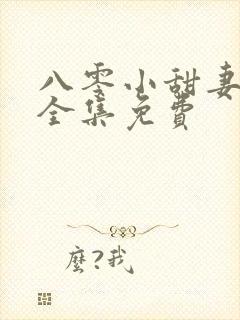 八零小甜妻
全集免费
麼?我